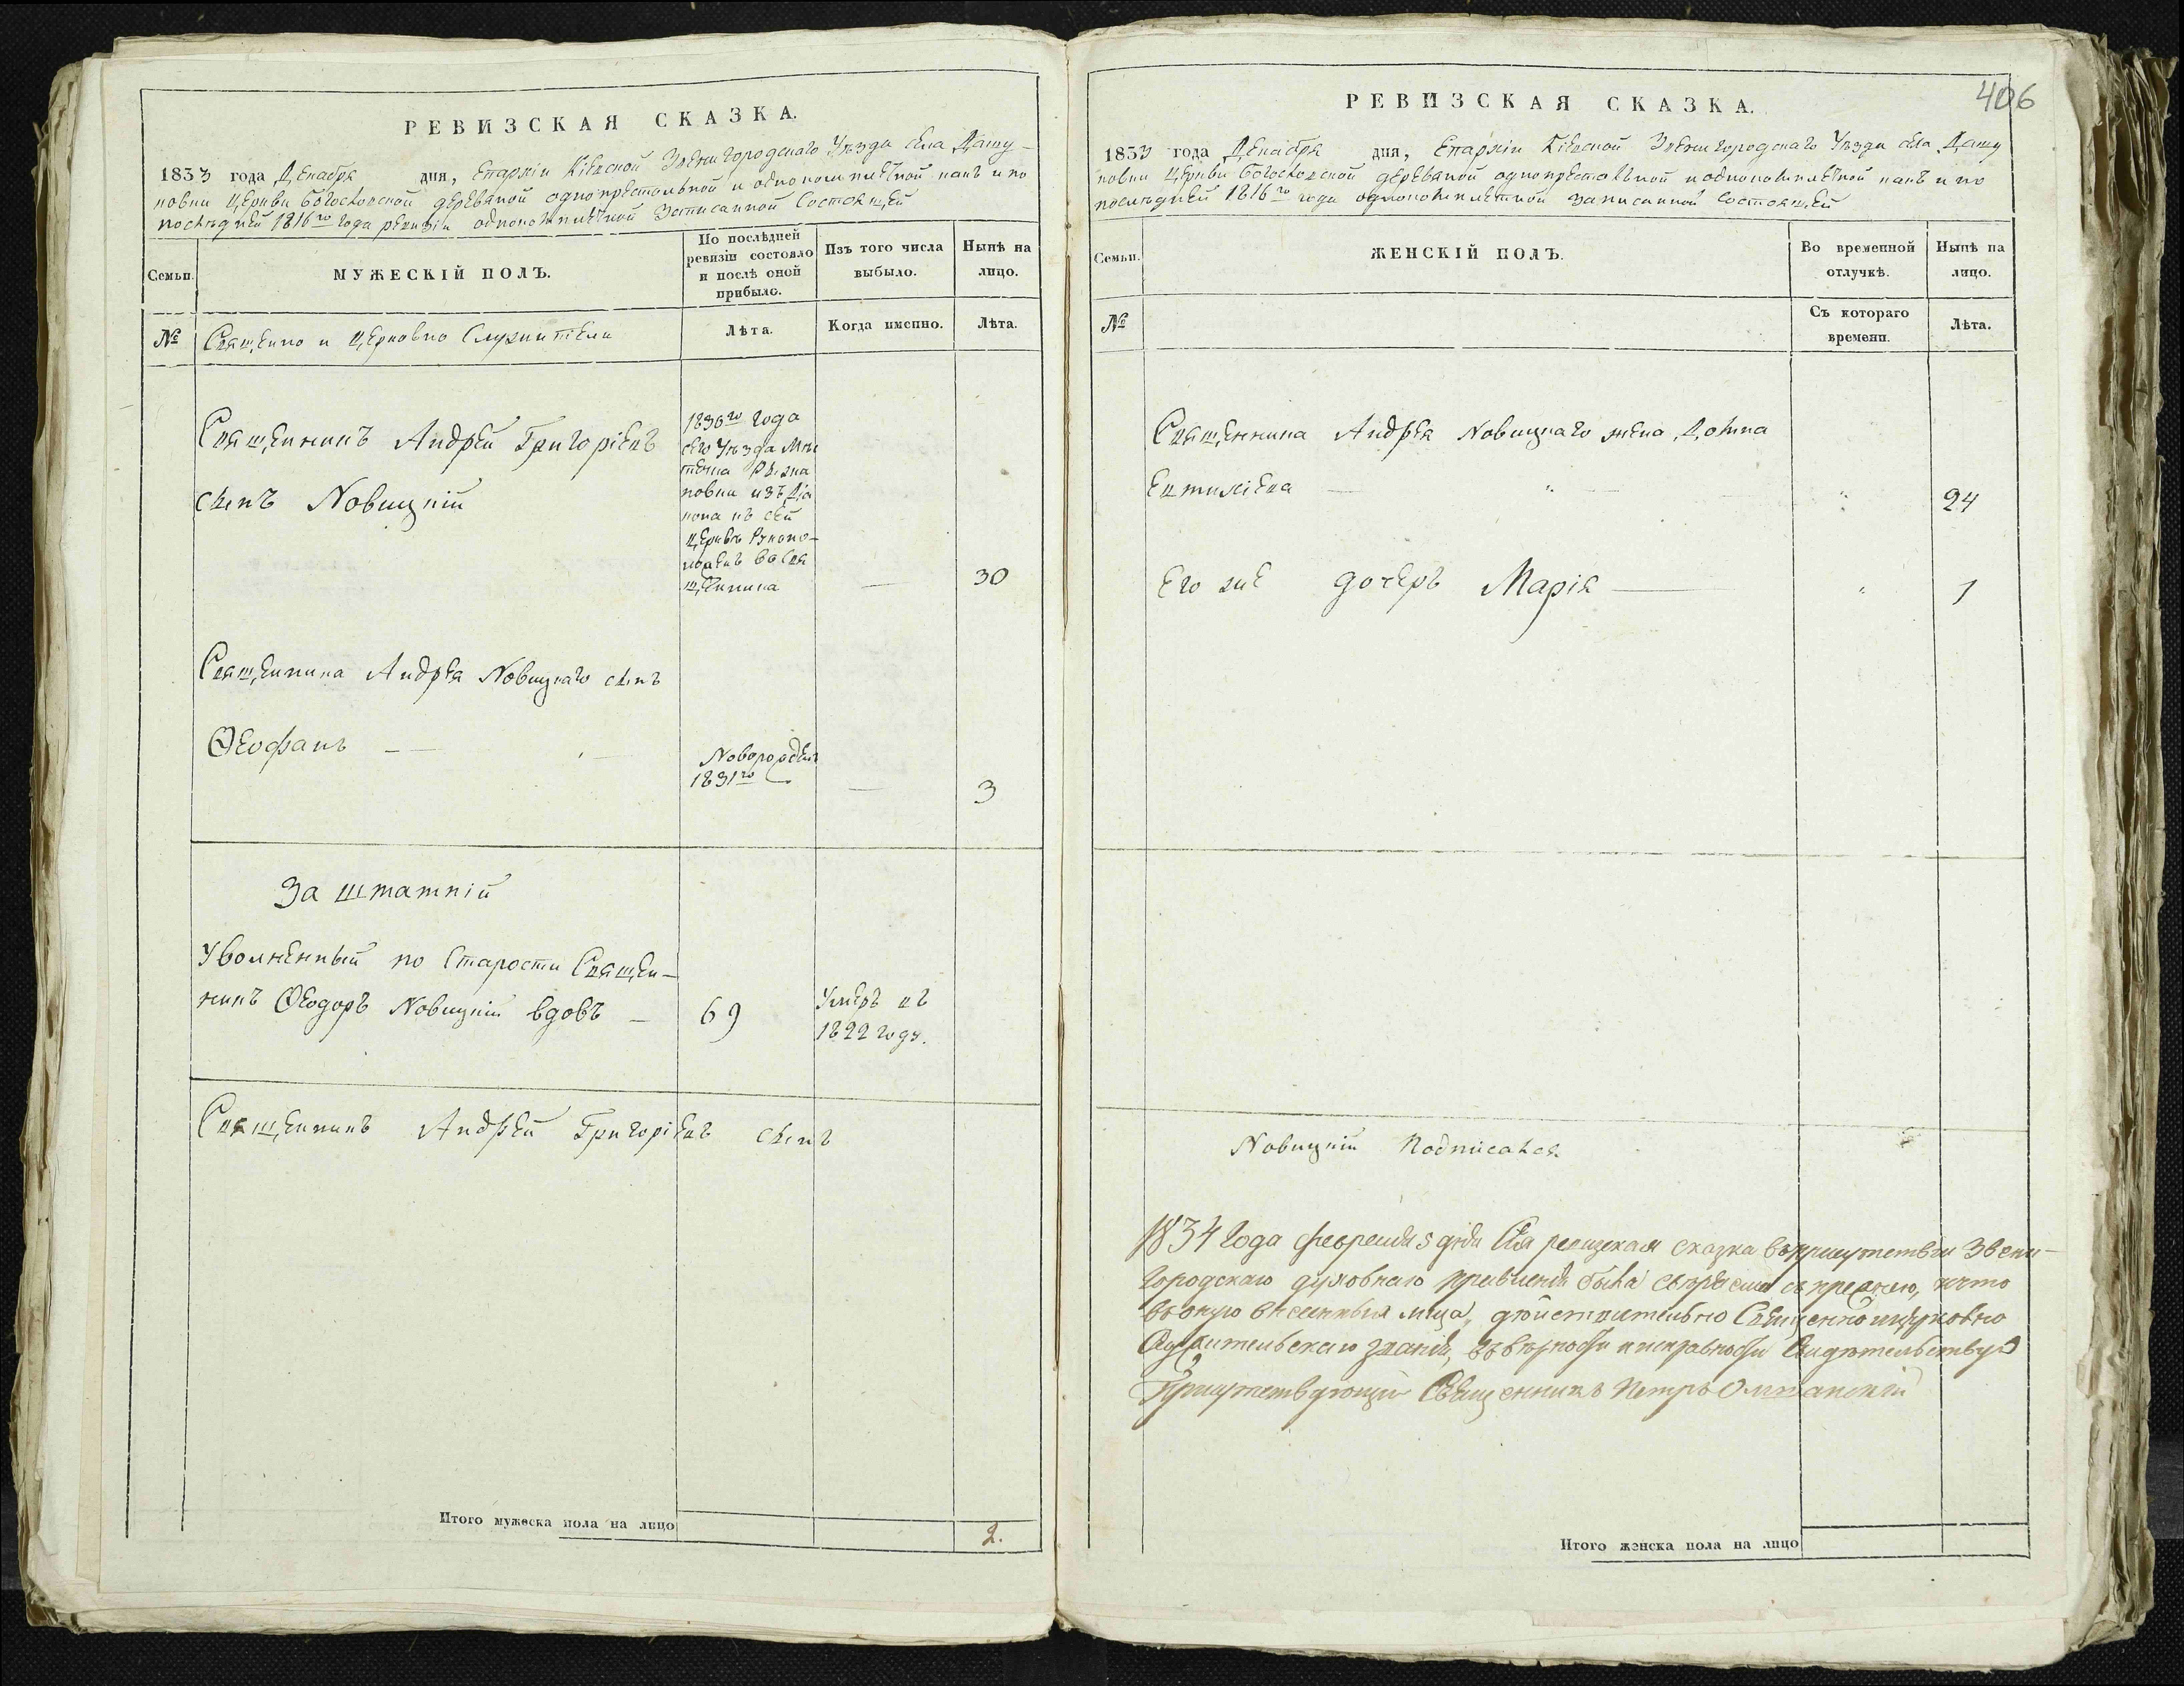 РЕВИЗСКАЯ СКАЗКА.
1833 года Декабря дня, Епархіи Кіевской Звенигородскаго Уѣзда села Дашу-
ковки Церкви Богословской деревяной однопрестольной и однокомплетной какъ и по
послѣдней 1816го года ревизіи однокомплетной записанной состоящей
Семьи.
МУЖЕСКІЙ ПОЛЪ.
По послѣдней ревизіи состояло и послѣ оной прибыло.
Изъ того числа выбыло.
Нынѣ на лицо.
№
Священно и церковно служители
Лѣта.
Когда именно.
Лѣта.
Священникъ Андрей Григоріевъ
сынъ Новицкій
1830го года
сего Уѣзда Мѣс
течка
новки изъ Діа
кона къ сей
церквѣ рукопо-
ложенъ во свя
щенника
—
30
Священника Андрея Новицкаго сынъ
Ѳеофанъ — —
Новорожден
1831го
—
3
За штатній
Уволненный по старости Священ-
никъ Ѳеодоръ Новицкій вдовъ —
69
Умеръ въ
1822 году.
Священникъ Андрей Григоріевъ сынъ
Итого мужеска пола на лицо
2.
406
РЕВИЗСКАЯ СКАЗКА.
1833 года Декабря дня, Епархіи Кіевской Звенигородскаго Уѣзда села Дашу
ковки Церкви Богословской деревяной однопрестольной и однокомплетной какъ и по
послѣдней 1816го года однокомплетной записанной состоящей
Семьи.
ЖЕНСКІЙ ПОЛЪ.
Во временной отлучкѣ.
Нынѣ на лицо.
№
Съ котораго времени.
Лѣта.
Священника Андрея Новицкаго жена Домна
Евтихіева —
24
Его же дочерь Марія —
1
Новицкій Подписался
1834 года февраля 5 дня Сія ревизская сказка въ присутствіи Звени-
городскаго духовнаго правленія была съ прежнею, и что
въ оную внесенныя лица, дѣйствительно Священно и церковно
служительскаго званія, въ вѣрности и исправности Свидѣтельствую
Присутствующій Священникъ Петръ
Итого женска пола на лицо